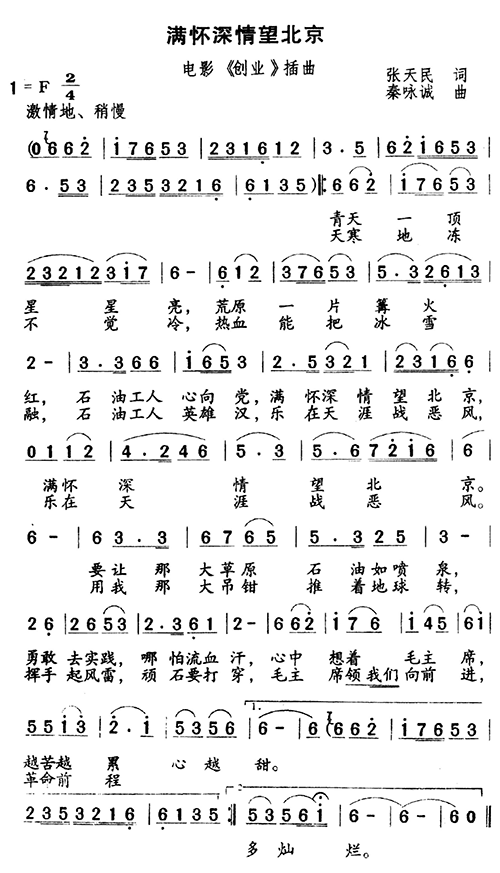 满怀深情望北京
电影《创业》插曲
张天民 词
1=F 2/4
秦咏诚 曲
激情地、稍慢
(0662 | i7653 | 231612 | 3·5 | 621653 |
6·53 | 2353216 | 6135) ‖: 662 | i7653 |
青天一顶
天寒地冻
2321231i7 | 6- | 6i2 | 37653 | 5·32613 |
星星亮，荒原一片篝火
不觉冷，热血能把冰雪
2- | 3·366 | i653 | 2·5321 | 23166 |
红，石油工人心向党，满怀深情望北京，
融，石油工人英雄汉，乐在天涯战恶风，
0112 | 4·246 | 5·3 | 5·67216 | 6
满怀深情望北京。
乐在天涯战恶风。
6- | 63·3 | 6765 | 5·325 | 3- |
要让那大草原石油如喷泉，
用我那大吊钳推着地球转，
26 | 2653 | 2·361 | 2- | 662 | i76 | i45 | 6i |
勇敢去实践，哪怕流血汗，心中想着毛主席，
挥手起风雷，顽石要打穿，毛主席领我们向前进，
55i3 | 2·i | 5356 | 6- | 6- | 662 | i7653 |
1.
越苦越累心越甜。
革命前程
2353216 | 6135 :‖ 53561 | 6- | 6- | 60 ‖
2.
多灿烂。